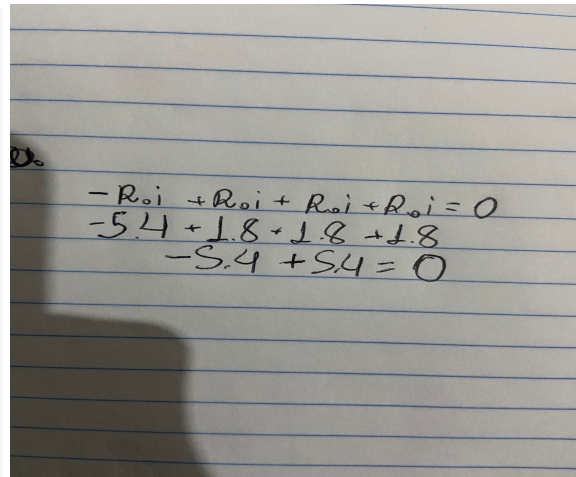 -R.i +R.i + R.i + R.i = 0
-5.4 + 1.8 + 1.8 + 1.8
-5.4 + 5.4 = 0